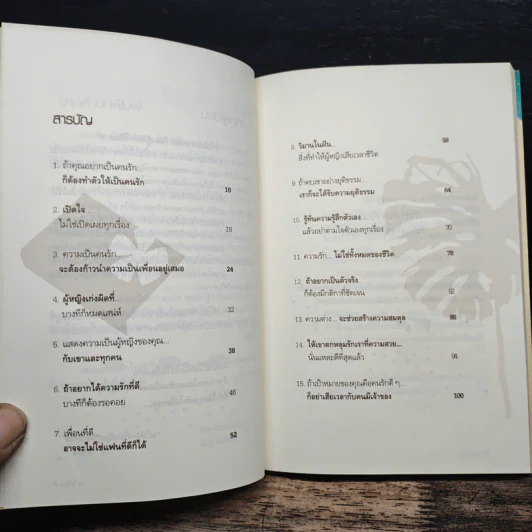 สารบัญ
1. ถ้าคุณอยากเป็นคนรัก...
ก็ต้องทำตัวให้เป็นคนรัก 10
2. เปิดใจ...
ไม่ใช่เปิดเผยทุกเรื่อง 18
3. ความเป็นคนรัก...
จะต้องก้าวนำความเป็นเพื่อนอยู่เสมอ 24
4. ผู้หญิงเก่งผิดที่...
บางทีก็หมดเสน่ห์ 32
5. แสดงความเป็นผู้หญิงของคุณ...
กับเขาและทุกคน 38
6. ถ้าอยากได้ความรักที่ดี...
บางทีก็ต้องรอคอย 46
7. เพื่อนที่ดี...
อาจจะไม่ใช่แฟนที่ดีก็ได้ 52
8. วิมานในฝัน...
สิ่งที่ทำให้ผู้หญิงเสียเวลาชีวิต 58
9. ถ้าคบเขาอย่างยุติธรรม...
เราก็จะได้รับความยุติธรรม 64
10. รู้ทันความรู้สึกตัวเอง...
แล้วอย่าตามใจตัวเองทุกเรื่อง 70
11. ความรัก... ไม่ใช่ทั้งหมดของชีวิต 78
12. ถ้าอยากเป็นตัวจริง...
ก็ต้องมีกติกาที่ชัดเจน 82
13. ความต่าง... จะช่วยสร้างความสมดุล 88
14. ให้เขาตกหลุมรักเราที่ความสวย...
นั่นแหละดีที่สุดแล้ว 94
15. ถ้าเป้าหมายของคุณคือคนรักดี ๆ...
ก็อย่าเสียเวลากับคนมีเจ้าของ 100